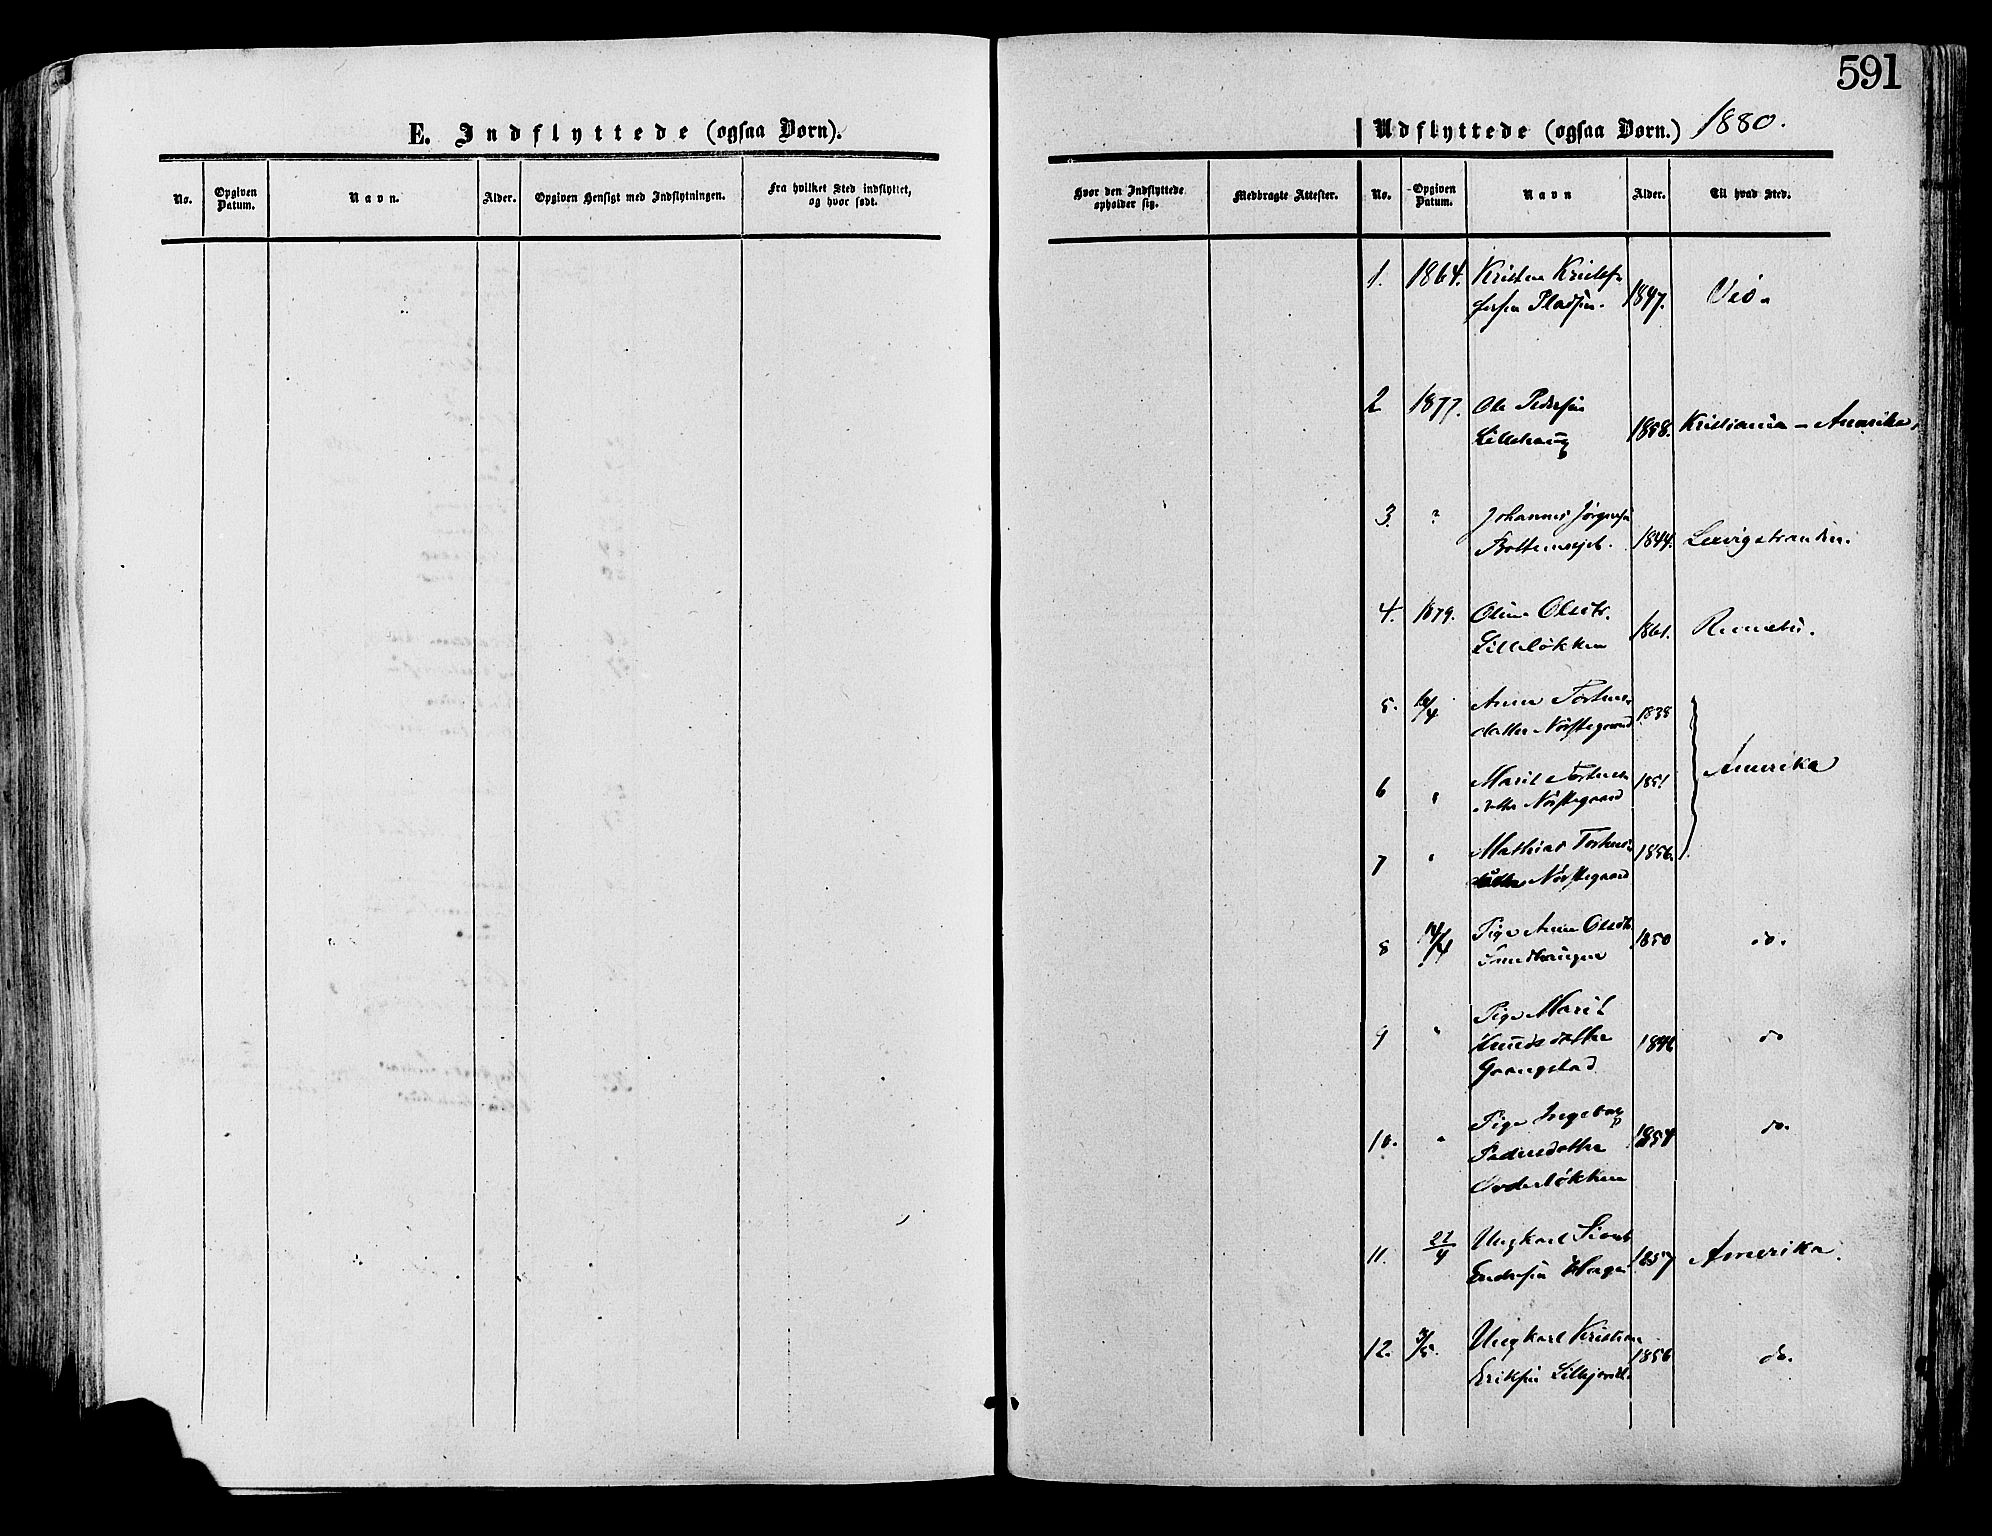 591
E. Indflyttede (ogsaa Børn).
No.
Opgiven Datum.
Navn.
Alder.
Opgiven Hensigt med Indflytningen.
Fra hvilket Sted indflyttet, og hvor født.
Udflyttede (ogsaa Børn.) 1880.
Hvor den Indflyttede opholder sig.
Medbragte Attester.
No.
Opgiven Datum.
Navn
Alder.
Til hvad Sted.
1. 1864. Kristen Kristof
fersen Pladsen. 1847.
2 1877. Ole Pedersen
Lillehaug 1858. Kristiania - Amerika,
3. " Johannes Jørgensen
1844.
4. 1879. Oline Olsdtr.
Lilleløkken 1861.
5. /4 Anne Torstens
datter Nørstegaard 1838
6 " Marit Torstens
datter Nørstegaard 1851
Amerika
7 " Mathias Torstens
Nørstegaard 1856.
8 14/4 Pige Anne Olsdtr.
Smedhaugen 1850 do.
9 " Pige Marit
Knudsdatter do
10. " Pige Ingeborg
Pedersdatter 1854 do.
Øvderløkken
11. 22/4 Ungkarl Sivert
Endresen 1857 Amerika.
12. 3/5. Ungkarl Kristian
Eriksen 1856 do.